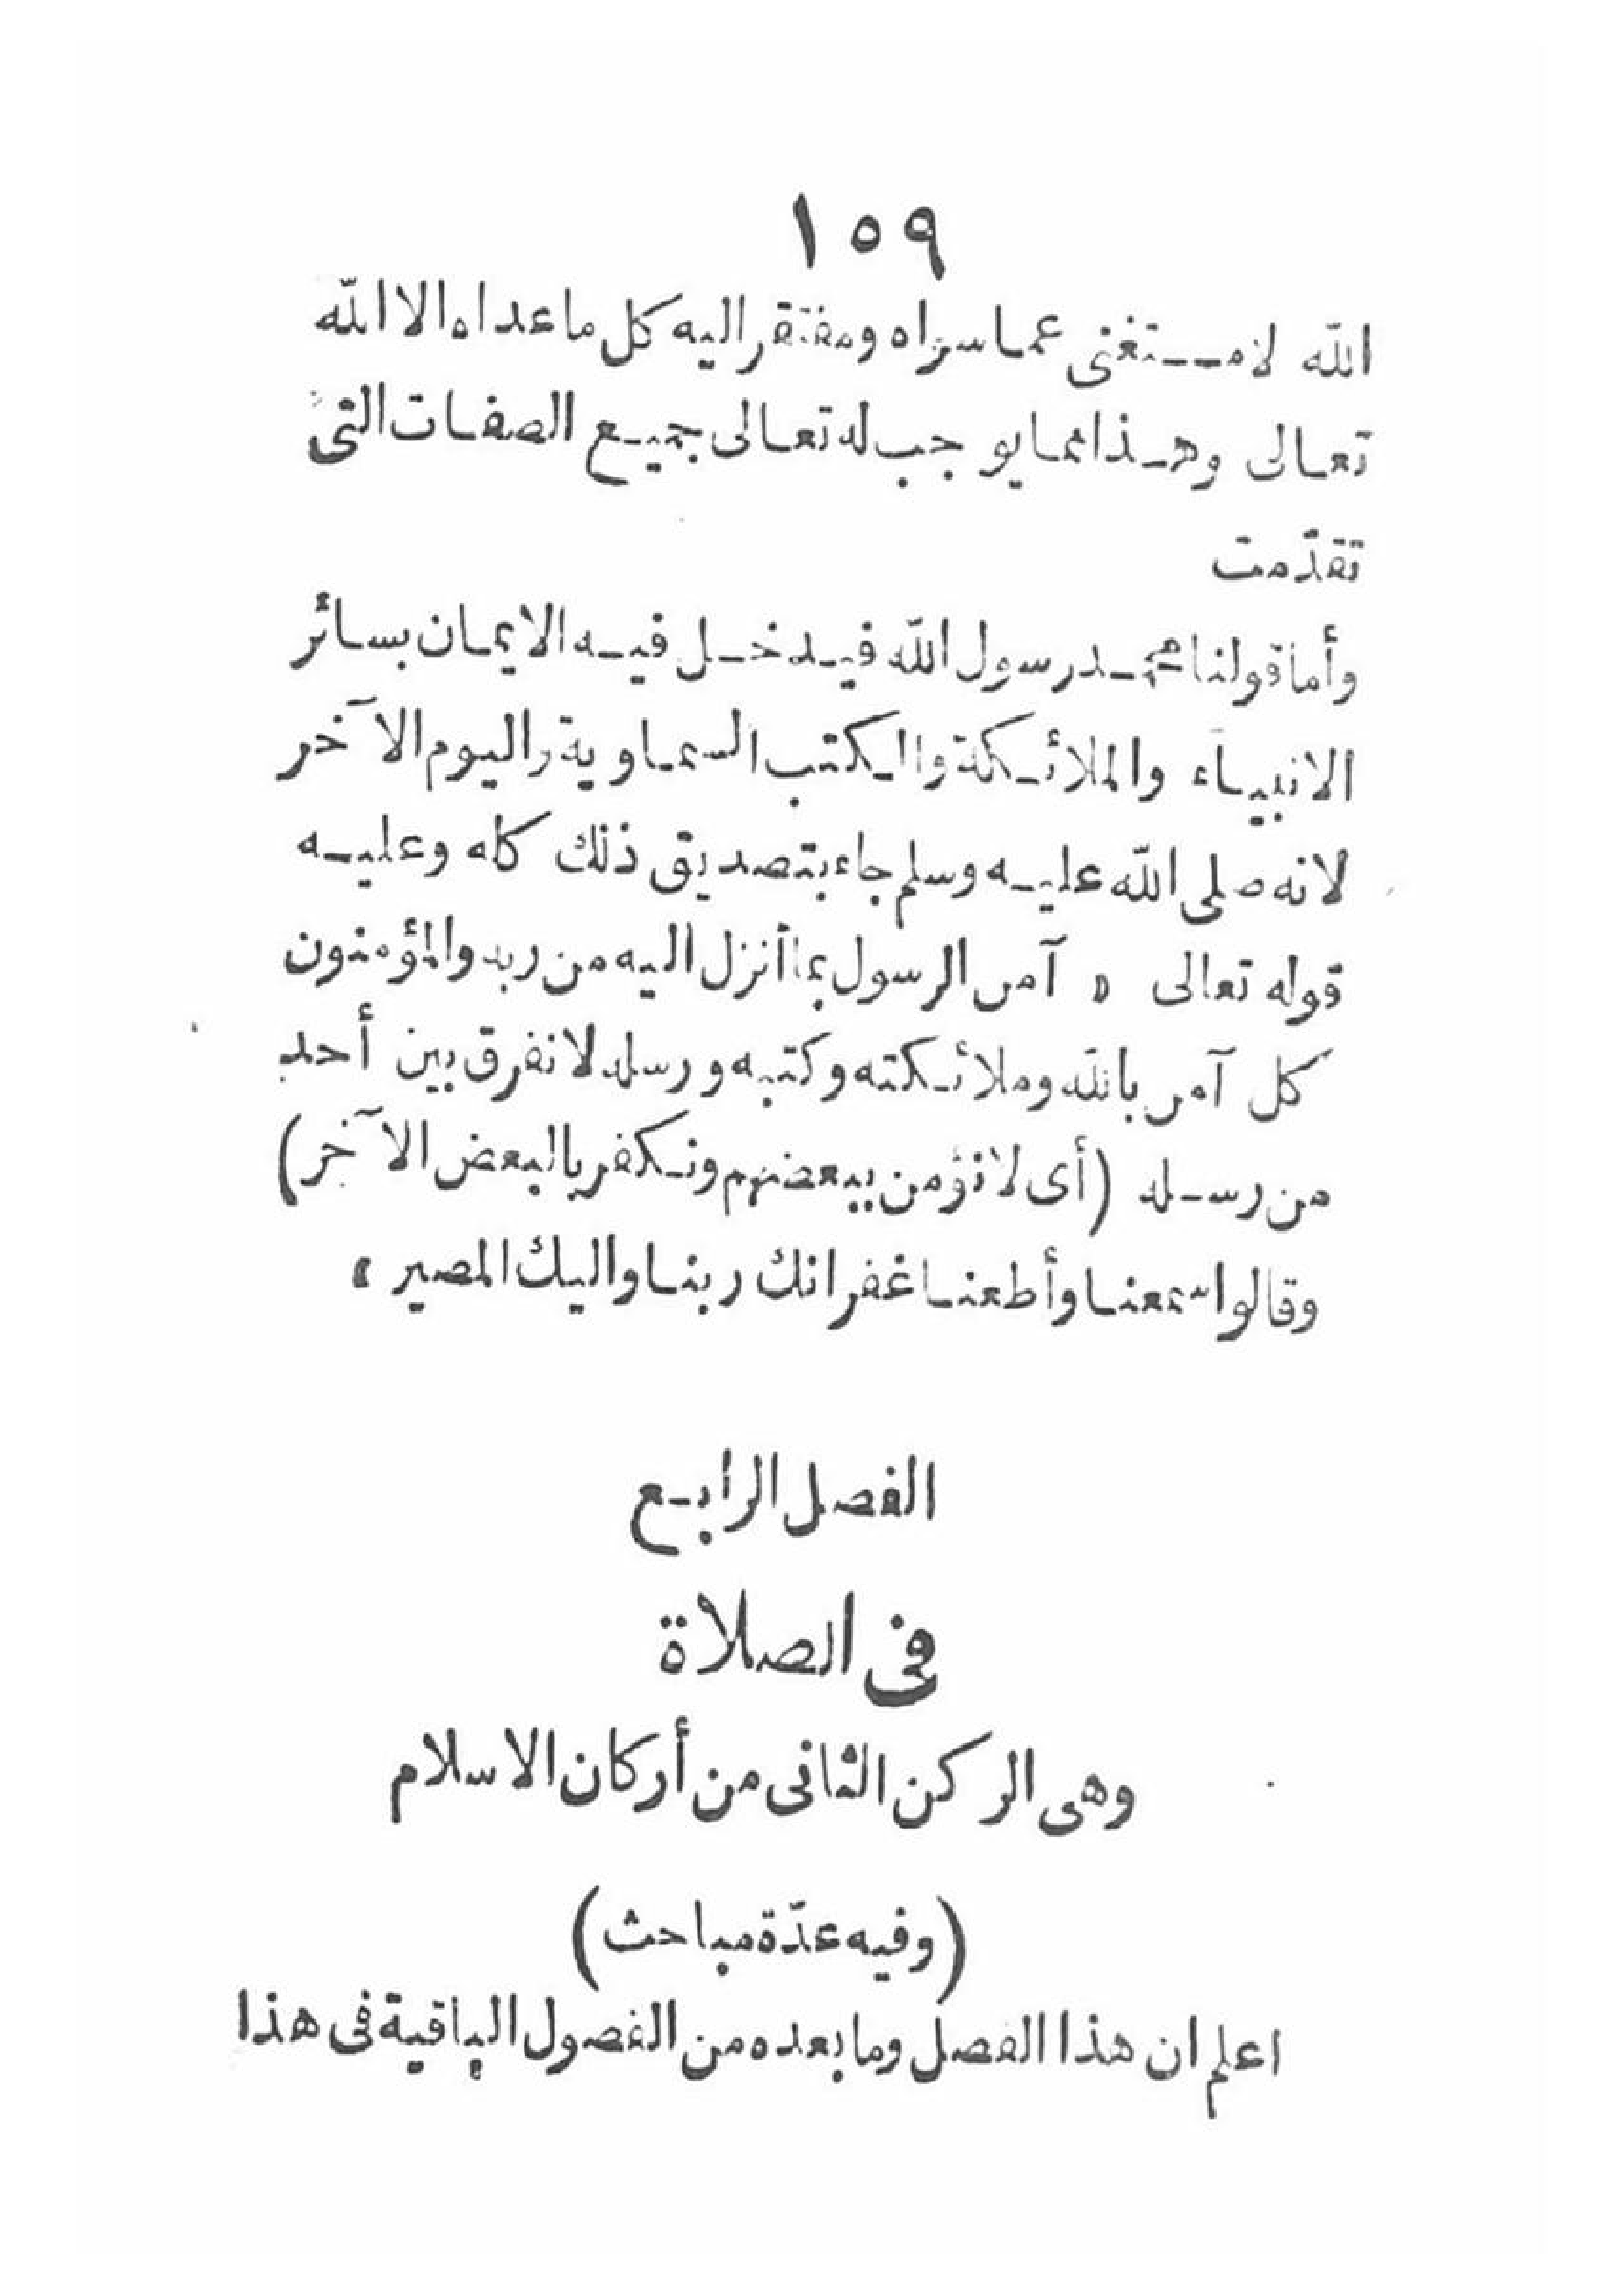 ١٥٩
الله لا مستغنى عما سواه ومفتقر اليه كل ما عداه الا الله
تعالى وهذا مما يوجب له تعالى جميع الصفات التى
تقدّمت
وأما قولنا محمد رسول الله فيدخل فيه الايمان بسائر
الانبياء والملائكة والكتب السماوية واليوم الآخر
لانه صلى الله عليه وسلم جاء بتصديق ذلك كله وعليه
قوله تعالى « آمن الرسول بما أنزل اليه من ربه والمؤمنون
كل آمن بالله وملائكته وكتبه ورسله لا نفرق بين أحد
من رسله (أى لا نؤمن ببعضهم ونكفر بالبعض الآخر)
وقالوا سمعنا وأطعنا غفرانك ربنا واليك المصير »
الفصل الرابع
فى الصلاة
وهى الركن الثانى من أركان الاسلام
(وفيه عدّة مباحث)
اعلم ان هذا الفصل وما بعده من الفصول الباقية فى هذا